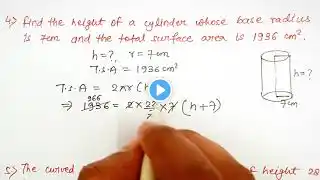 4) Find the height of a cylinder whose base radius
is 7cm and the total surface area is 1936 cm².
h=? r = 7cm
T.S.A = 1936 cm²
h=?
7cm
T.S.A = 2πr(
966
⇒ 1936 = 2 × 22/7 × 7 (h+7)
5) The curved
of height 28